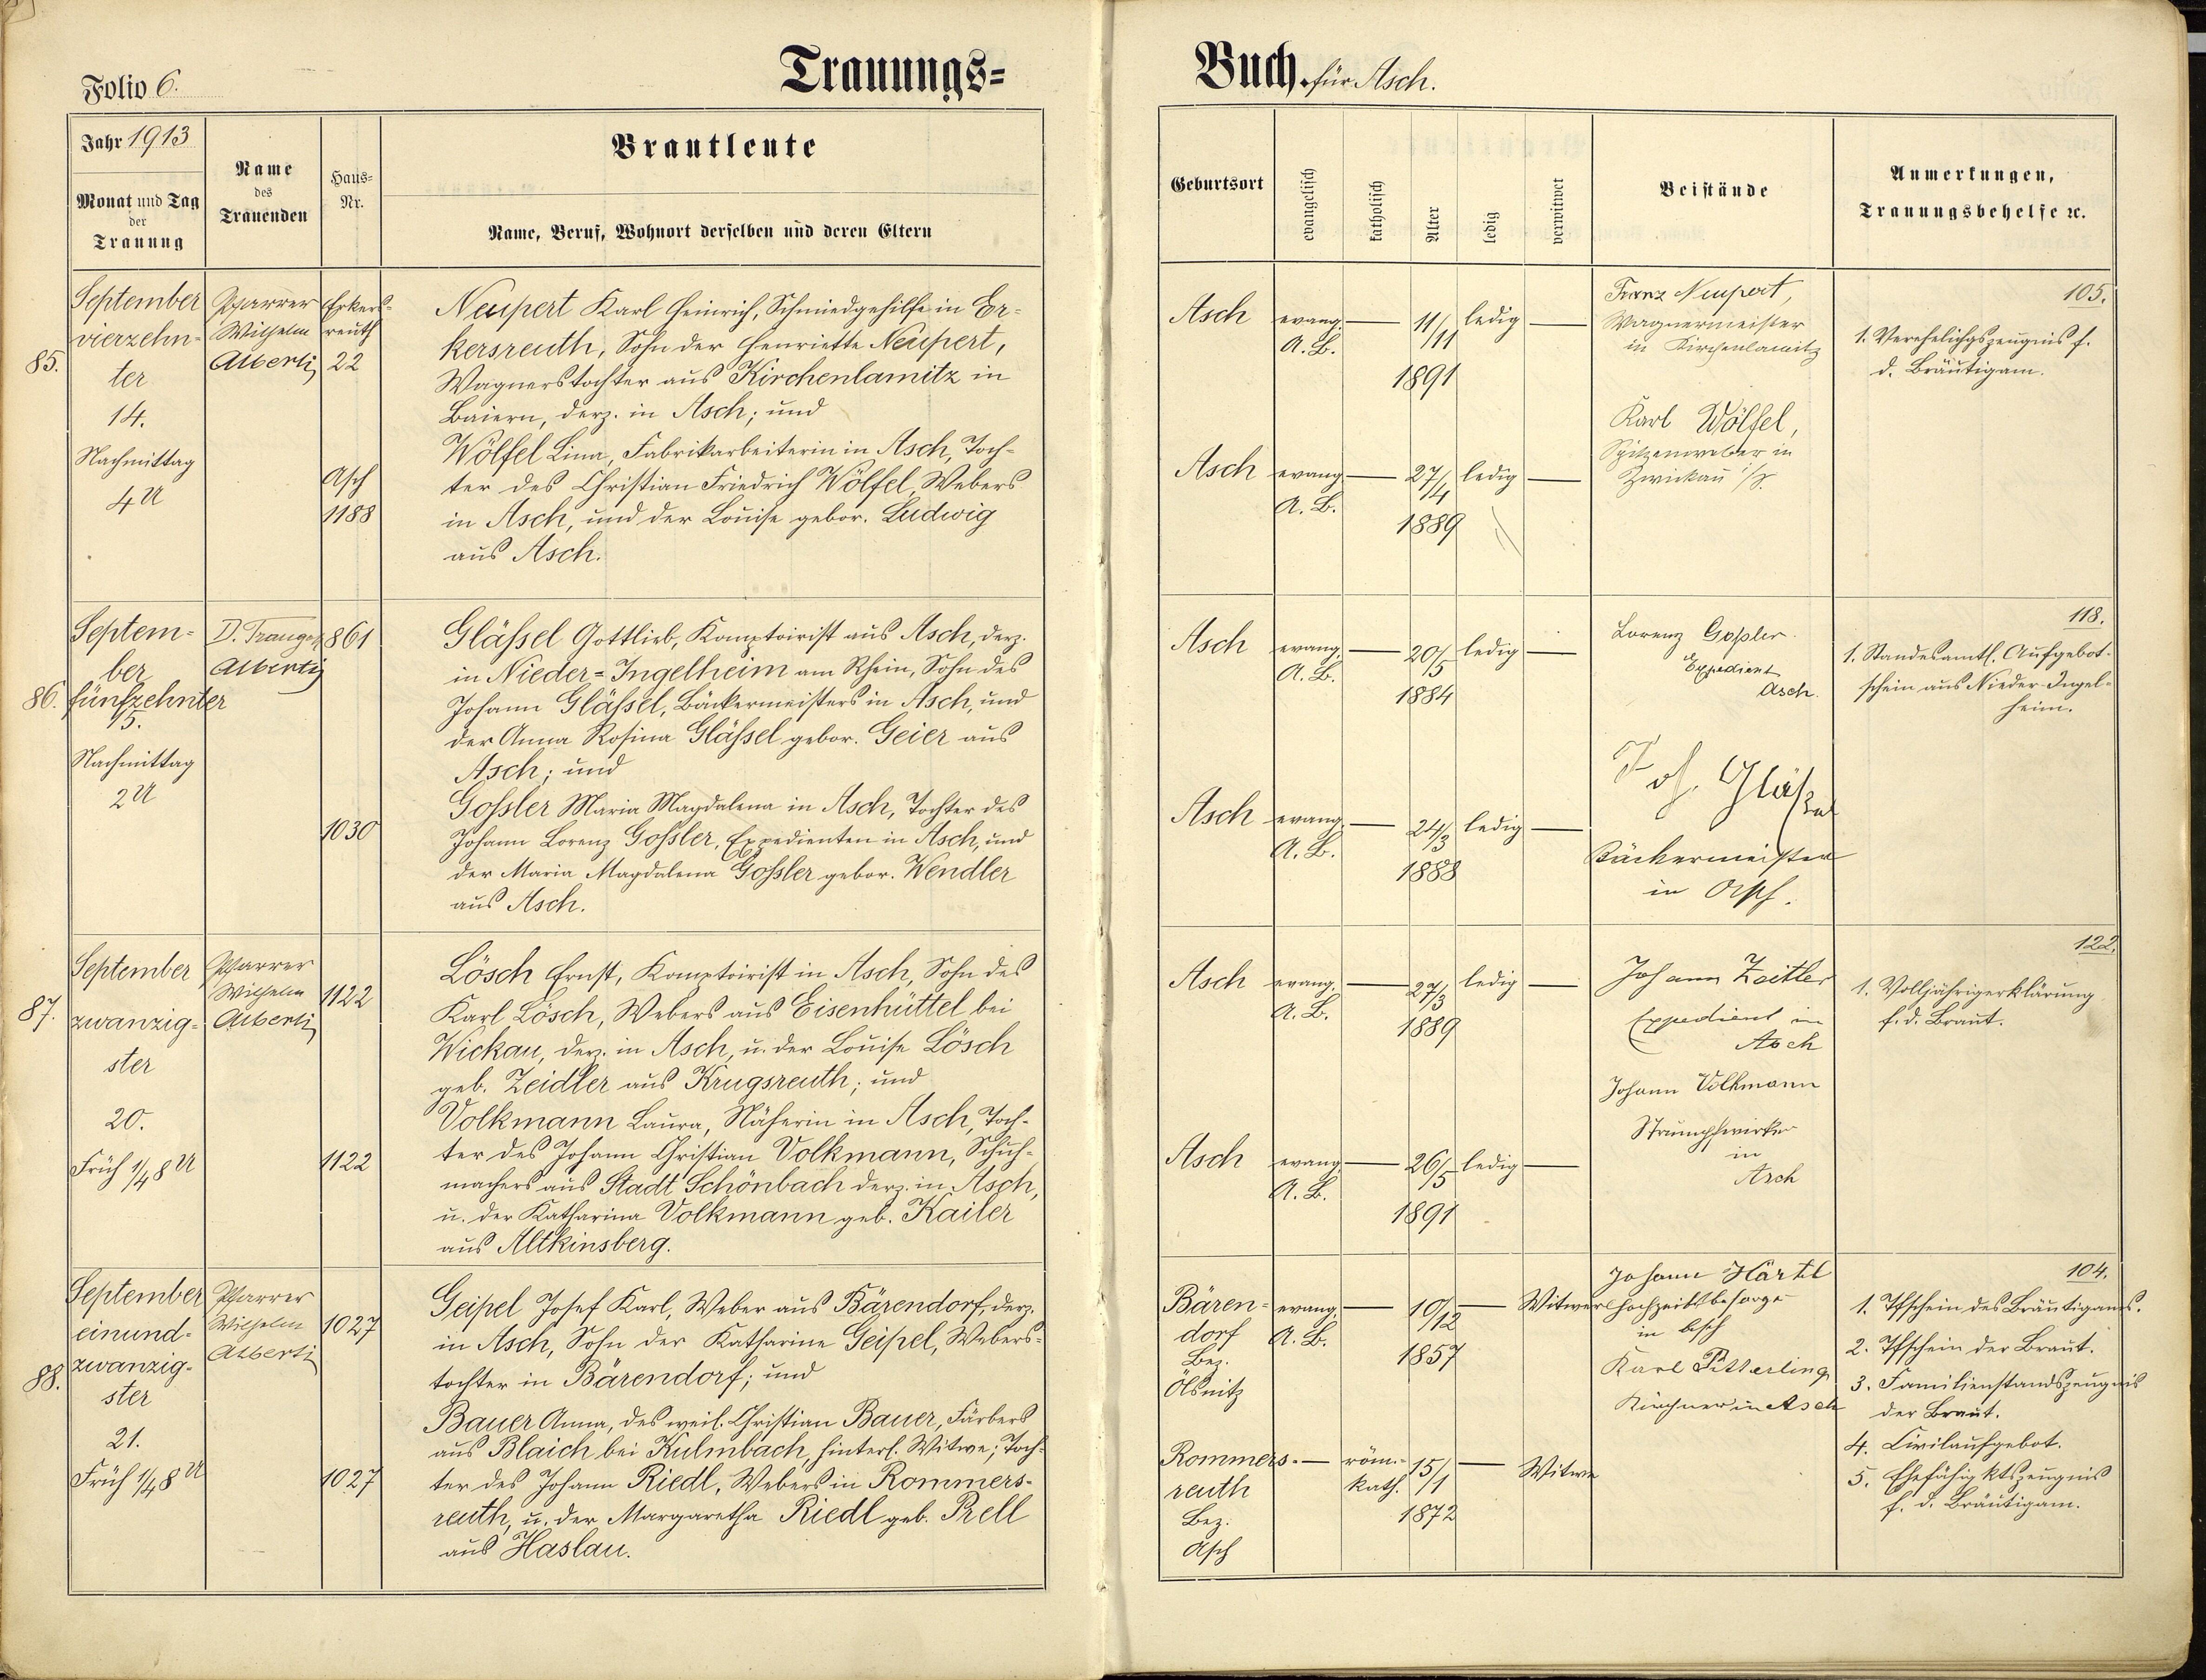 Folio 6.
Trauungs=
Buch. für Asch.
Jahr 1913
Monat und Tag
der
Trauung
Name
des
Trauenden
Haus=
Nr.
Brautleute
Name, Beruf, Wohnort derselben und deren Eltern
Geburtsort
evangelisch
katholisch
Alter
ledig
verwitwet
Beistände
Anmerkungen,
Trauungsbehelfe ꝛc.
85.
September
vierzehn-
ter
14.
Nachmittag
4 U
Pfarrer
Wilhelm
Alberti
Erkers-
reuth
22
Asch
1188
Neupert Karl Heinrich, Schmiedgehilfe in Er-
kersreuth, Sohn der Henriette Neupert,
Wagnerstochter aus Kirchenlamitz in
Baiern, derz. in Asch; und
Wölfel Lina, Fabrikarbeiterin in Asch, Toch-
ter des Christian Friedrich Wölfel, Webers
in Asch, und der Louise gebor. Ludwig
aus Asch.
Asch evang. — 11/11 ledig —
A. B.
1891
Asch evang. — 27/4 ledig —
A. B.
1889
Franz Neupert,
Wagnermeister
in Kirchenlamitz
Karl Wölfel,
Spitzenweber in
Zwickau i/S.
105.
1. Verehelichgszeugnis f.
d. Bräutigam.
86.
Septem=
ber
fünfzehnter
15.
Nachmittag
2 U
D. Traugott
Alberti
861
1030
Gläßel Gottlieb, Komptoirist aus Asch, derz.
in Nieder=Ingelheim am Rhein, Sohn des
Johann Gläßel, Bäckermeisters in Asch, und
der Anna Rosina Gläßel gebor. Geier aus
Asch; und
Goßler Maria Magdalena in Asch, Tochter des
Johann Lorenz Goßler, Expedienten in Asch, und
der Maria Magdalena Goßler gebor. Wendler
aus Asch.
Asch evang. — 20/5 ledig —
A. B.
1884
Asch evang. — 24/3 ledig —
A. B.
1888
Lorenz Goßler
Expedient
Asch.
Joh. Gläßel
Bäckermeister
in Asch.
118.
1. Standesamtl. Aufgebot-
schein aus Nieder-Ingel=
heim.
87.
September
zwanzig-
ster
20.
Früh 1/4 8 U
Pfarrer
Wilhelm
Alberti
1122
1122
Lösch Ernst, Komptoirist in Asch, Sohn des
Karl Lösch, Webers aus Eisenhüttel bei
Wickau, derz. in Asch, u. der Louise Lösch
geb. Zeidler aus Krugsreuth; und
Volkmann Laura, Näherin in Asch, Toch-
ter des Johann Christian Volkmann, Schuh-
machers aus Stadt Schönbach derz. in Asch,
u. der Katharina Volkmann geb. Kailer
aus Altkinsberg.
Asch evang. — 27/3 ledig —
A. B.
1889
Asch evang. — 26/5 ledig —
A. B.
1891
Johann Zeitler
Expedient in
Asch
Johann Volkmann
Strumpfwirker
in
Asch
122.
1. Volljährigerklärung
f. d. Braut.
88.
September
einund-
zwanzig-
ster
21.
Früh 1/4 8 U
Pfarrer
Wilhelm
Alberti
1027
1027
Geipel Josef Karl, Weber aus Bärendorf, derz.
in Asch, Sohn der Katharine Geipel, Webers-
tochter in Bärendorf; und
Bauer Anna, des weil. Christian Bauer, Färbers
aus Blaich bei Kulmbach, hinterl. Witwe; Toch-
ter des Johann Riedl, Webers in Rommers-
reuth, u. der Margaretha Riedl geb. Prell
aus Haslau.
Bären- evang. — 10/12 — Witwer
dorf A. B.
Bez. 1857
Ölsnitz
Rommers- — röm.- 15/1 — Witwe
reuth kath.
Bez. 1872
Asch
Johann Härtel
Hochzeitsbesorger
in Asch
Karl Pitterling
Kirchner in Asch
104.
1. Tfschein des Bräutigams.
2. Tfschein der Braut.
3. Familienstandszeugnis
der Braut.
4. Civilaufgebot.
5. Ehefähigktszeugnis
f. d. Bräutigam.